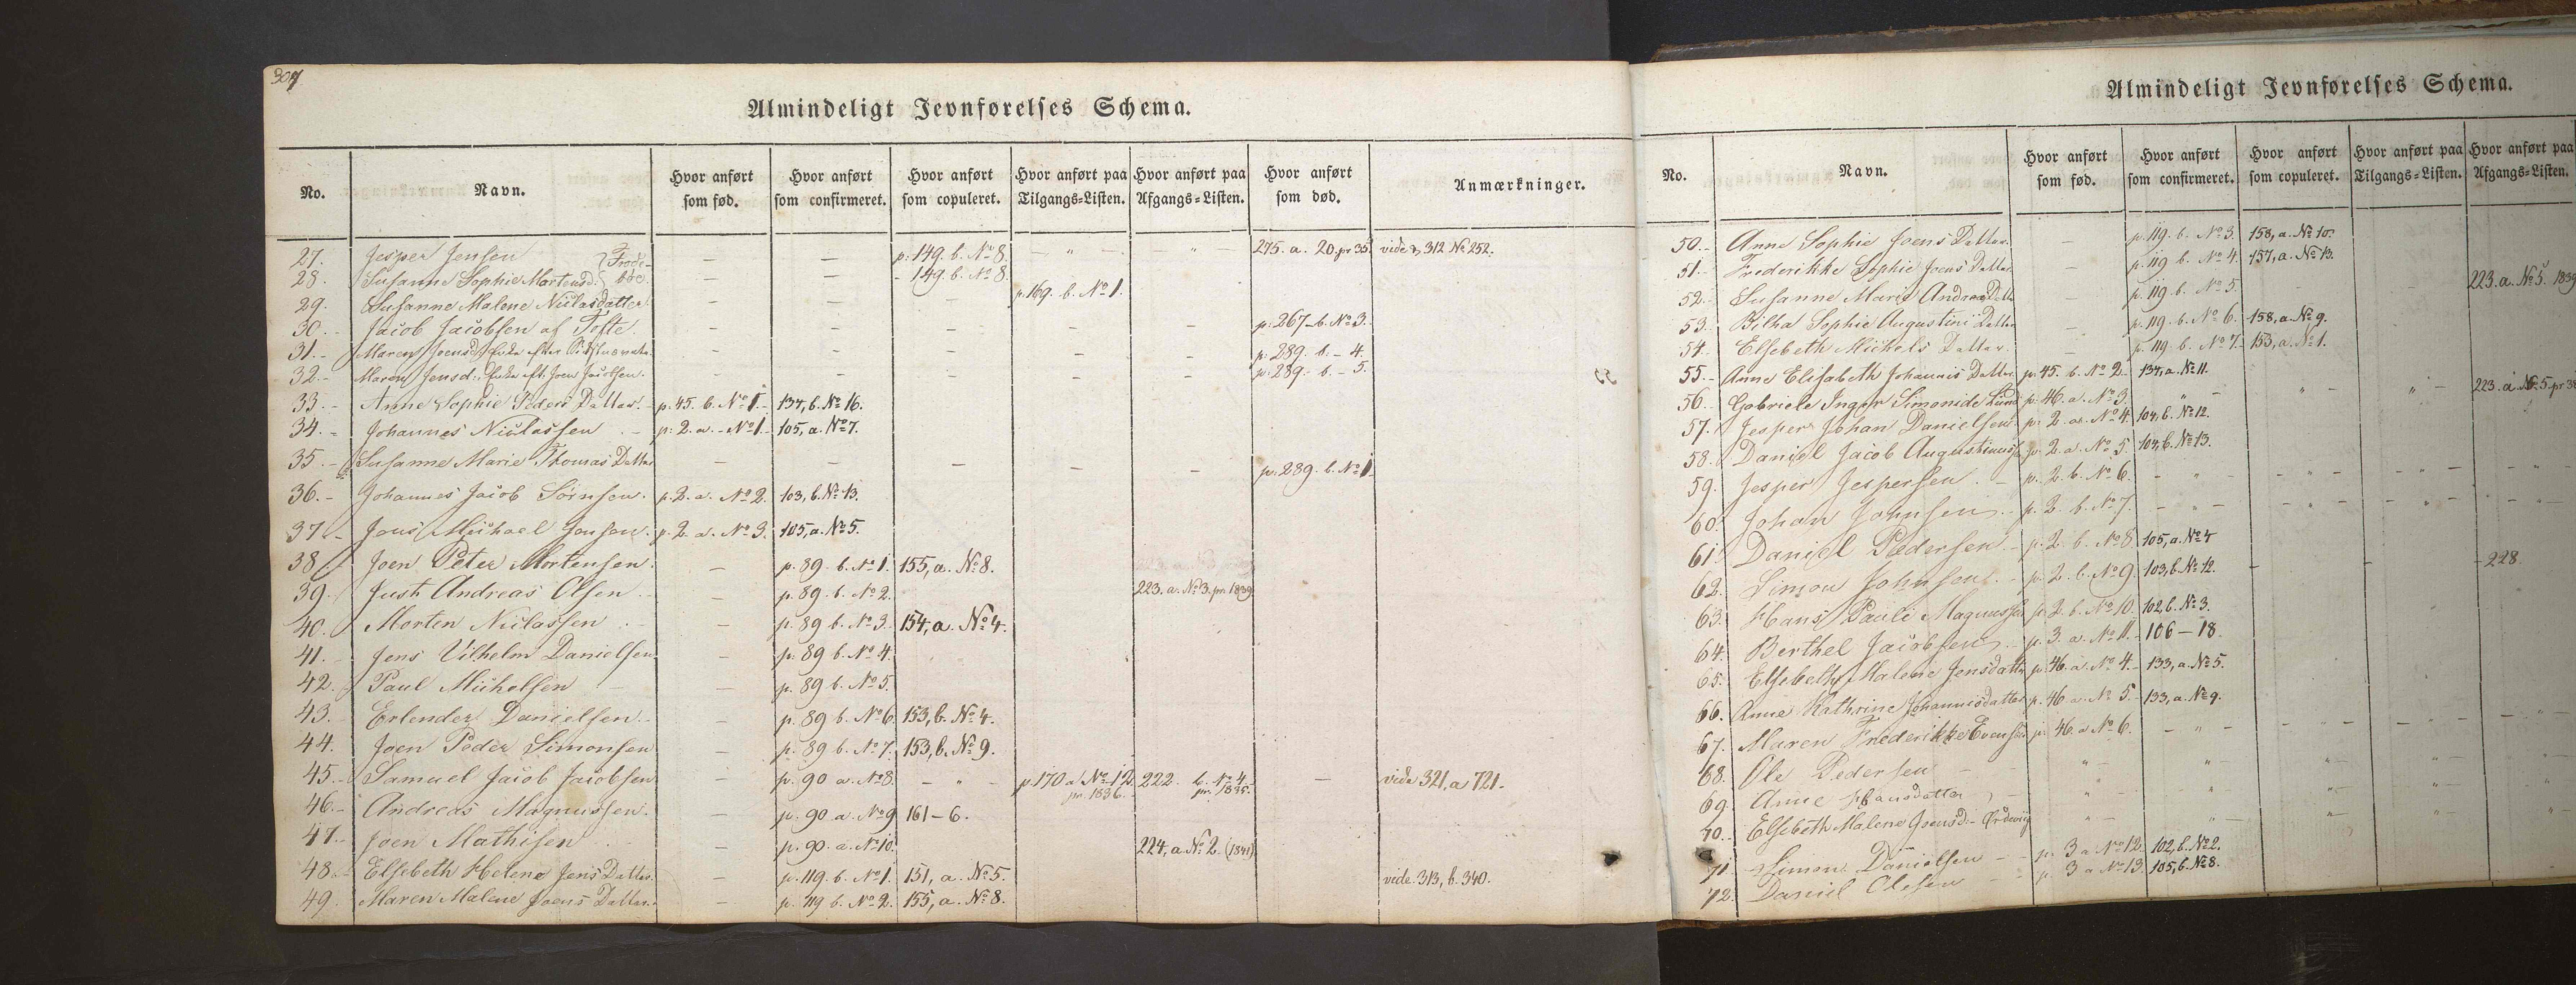 307
Almindeligt Jevnførelses Schema.
No. Navn. Hvor anført som fød. Hvor anført som confirmeret. Hvor anført som copuleret. Hvor anført paa Tilgangs-Listen. Hvor anført paa Afgangs-Listen. Hvor anført som død. Anmærkninger.
27. Jesper Jensen } Frode- — — p. 149. b. No 8. — " — — " — 275. a. 20. pr 35 vide 312 No 252.
28. Susanne Sophie Mortensd. } böe. — — - 149. b. No 8.
29. Susanne Malene Niclasdatter — — — p. 169. b. No 1.
30. Jacob Jacobsen af Tofte — — — — — p. 267. b. No 3.
31. Maren Joensd. Enke efter — — — — — p. 289. b. - 4.
32. Maren Jensd: Enke eft. Joen Jacobsen. — — — — — p. 289. b. - 5.
33. Anne Sophie Peders Datter. p. 45. b. No 1. 134, b. No 16.
34. Johannes Niclassen p. 2. a. No 1. 105, a. No 7.
35. Susanne Marie Thomas Datter — — — — — p. 289. b. No 1
36. Johannes Jacob Sörnsen. p. 2. a. No 2. 103, b. No 13.
37. Jens Michael Jensen. p. 2. a. No 3. 105, a. No 5.
38. Joen Peter Mortensen. — p. 89. b. No 1. 155, a. No 8.
39. Just Andreas Olsen. — p. 89. b. No 2. 223. a. No 3. pr. 1839
40. Morten Niclassen — p. 89 b. No 3. 154, a. No 4.
41. Jens Vilhelm Danielsen — p. 89 b. No 4.
42. Paul Michelsen — p. 89 b. No 5.
43. Erlender Danielsen. — p. 89 b. No 6. 153, b. No 4.
44. Joen Peder Simonsen — p. 89 b. No 7. 153, b. No 9.
45. Samuel Jacob Jacobsen — p. 90 a. No 8. — " — p. 170 a No 12. pr. 1836. 222. b. No 4. pr. 1835. — vide 321, a 721.
46. Andreas Magnussen. — p. 90. a. No 9 161 - 6.
47. Joen Mathisen — p. 90. a. No 10. 224, a No 2. (1841)
48. Elsebeth Helene Jens Datter. — p. 119. b. No 1. 151, a. No 5. vide. 313, b. 340.
49. Maren Malene Joens Datter. — p. 119 b. No 2. 155, a. No 8.
Almindeligt Jevnførelses Schema.
No. Navn. Hvor anført som fød. Hvor anført som confirmeret. Hvor anført som copuleret. Hvor anført paa Tilgangs-Listen. Hvor anført paa Afgangs-Listen.
50. Anne Sophie Joens Datter. — p. 119. b. No 3. 158, a. No 10.
51. Frederikke Sophie Joens Datter — p. 119 b. No 4. 157, a. No 13.
52. Susanne Marie Andreas Datt — p. 119 b. No 5. — — 223. a. No 5. 1839
53. Bilha Sophie Augustini Datter — p. 119. b. No 6. 158, a. No 9.
54. Elsebeth Michels Datter. — p. 119 b. No 7. 153, a. No 1.
55. Anne Elisabeth Johannis Datter p. 45. b. No 2. 134, a. No 11.
56. Gabriele Inger Simonide Lund p. 46. a. No 3. " — " — " — 223. a. No 5 pr 38
57. Jesper Johan Danielsen p. 2. a. No 4. 104, b. No 12.
58. Daniel Jacob Augustinuss p. 2. a. No 5. 104, b. No 13.
59. Jesper Jespersen. p. 2. b. No 6. - " - - " - - " - - "
60. Johan Johnsen p. 2. b. No 7. - " - - " - - " - - " -
61. Daniel Pedersen p. 2. b. No 8 105, a. No 4
62. Simon Johnsen. p. 2. b. No 9. 103, b. No 12. — — - 228.
63. Hans Pauli Magnussen p. 2. b. No 10. 102, b. No 3.
64. Berthel Jacobsen p. 3. a. No 11. 106 - 18.
65. Elsebeth Malene Jensdatter p. 46. a. No 4. 133, a. No 5.
66. Anne Kathrine Johannisdatter p. 46. a. No 5. 133, a. No 9.
67. Maren Frederikke Evensd p. 46. a No 6. - " - - " - - " - - "
68. Ole Pedersen " - " - " - " -
69. Anne Hansdatter " - " - " - " -
70. Elsebeth Malene Joensd. - " - " - " - " -
71. Simon Danielsen p. 3 a No 12. 102, b. No 2.
72. Daniel Olesen p. 3 a No 13. 105, b. No 8.